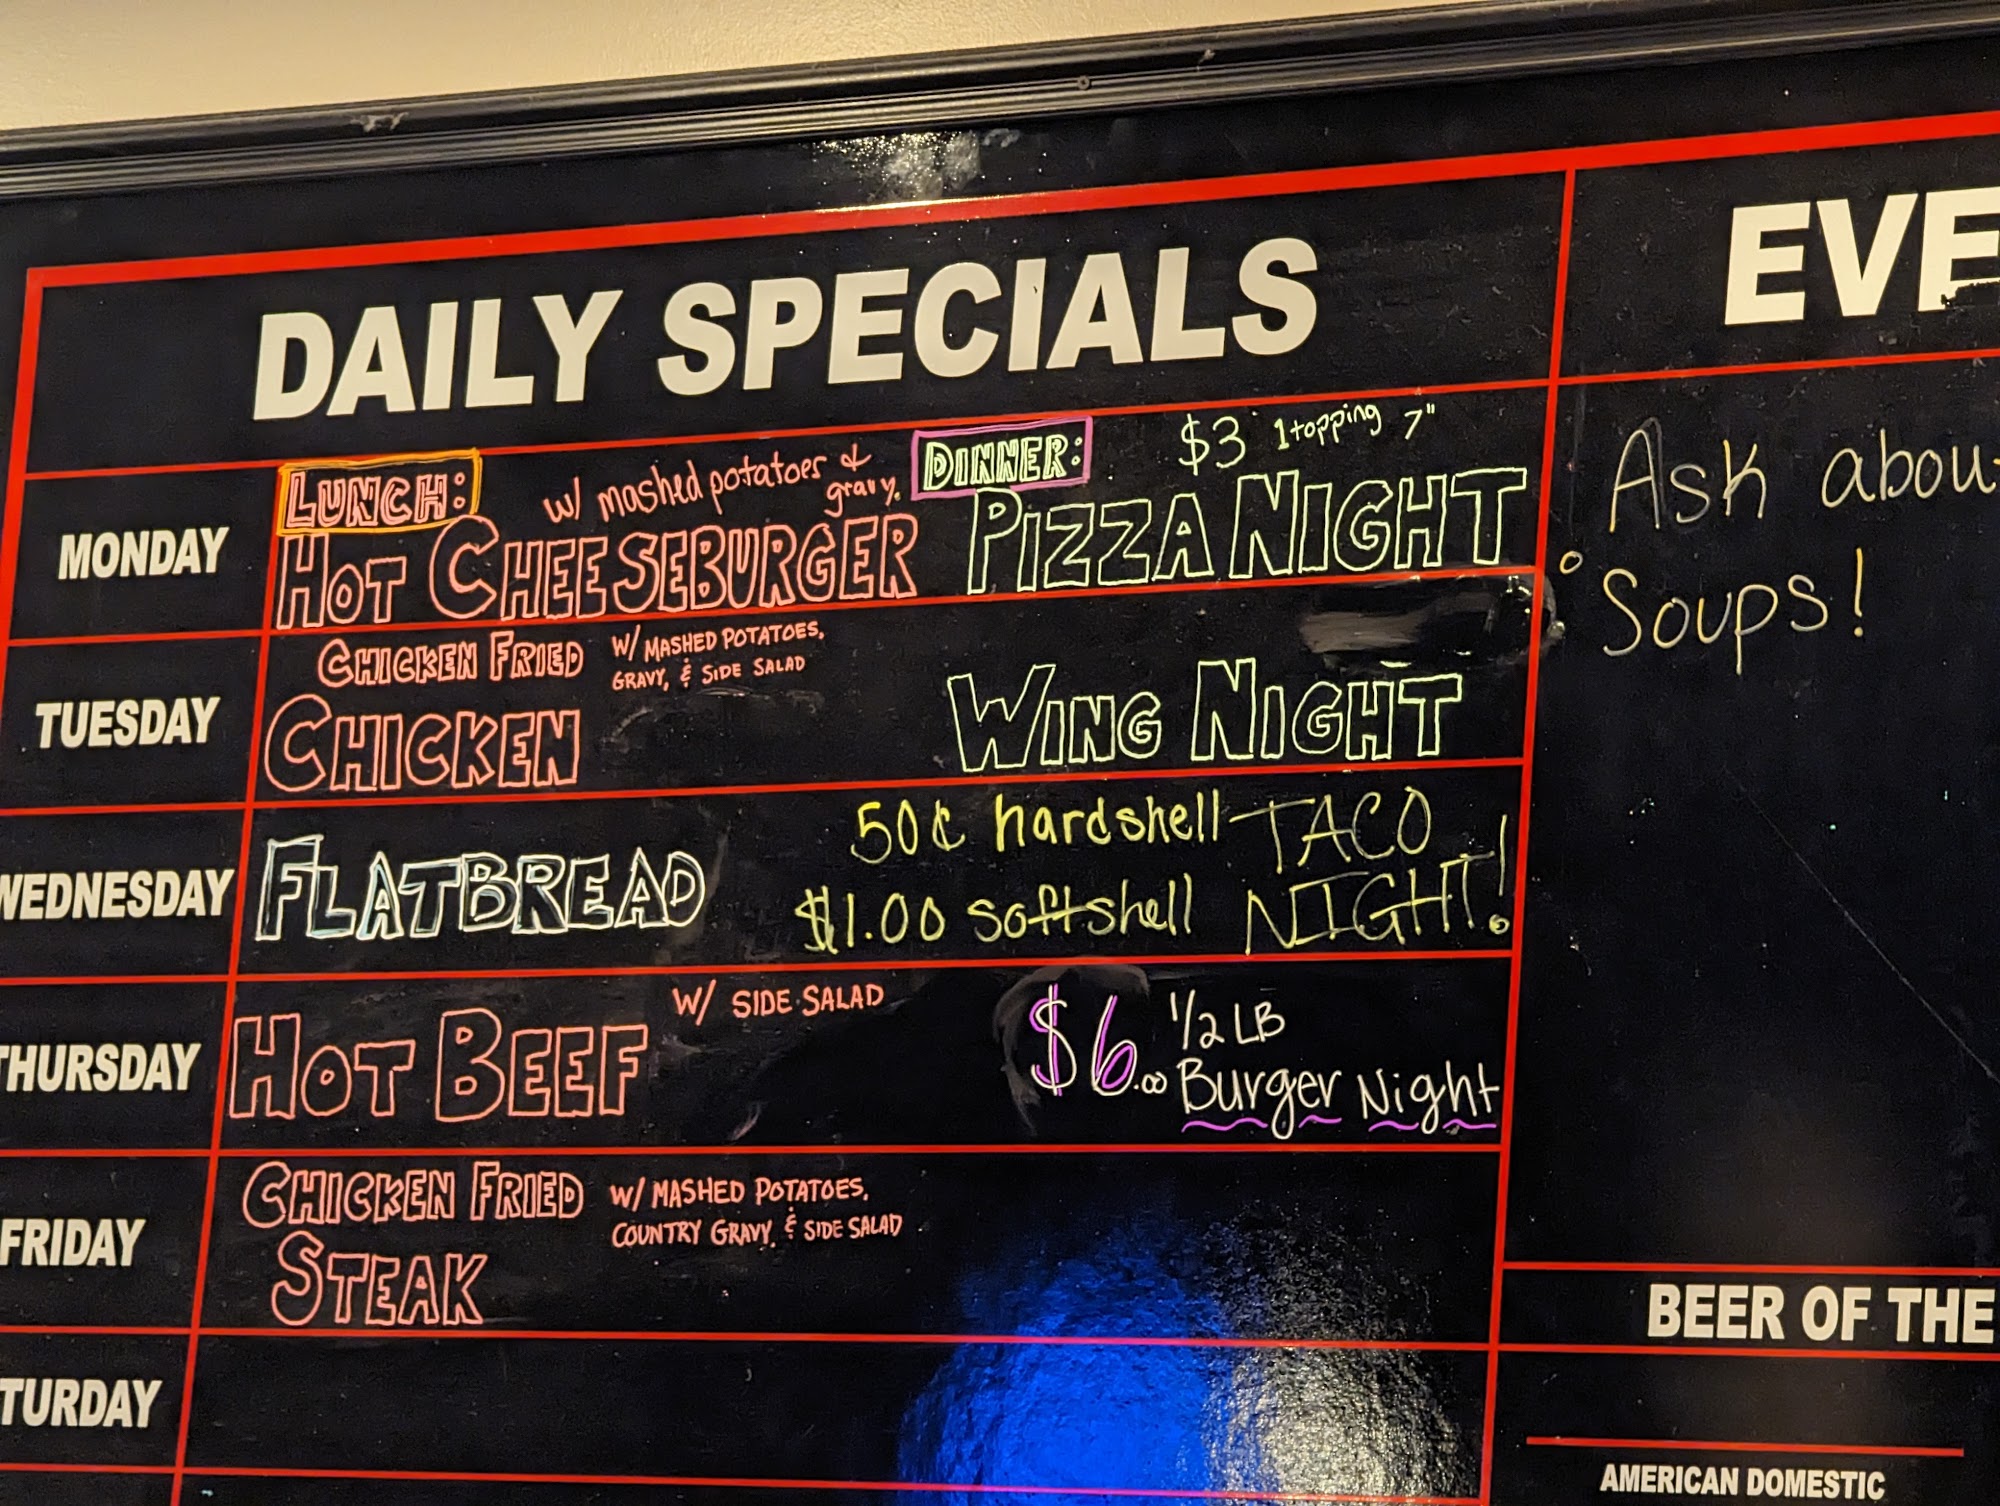 DAILY SPECIALS
MONDAY
LUNCH:
w/ mashed potatoes &
gravy.
HOT CHEESEBURGER
DINNER:
$3 1 topping 7"
PIZZA NIGHT
TUESDAY
CHICKEN FRIED
CHICKEN
W/ MASHED POTATOES,
GRAVY, & SIDE SALAD
WING NIGHT
WEDNESDAY
FLATBREAD
50¢ hardshell
$1.00 softshell
TACO
NIGHT!
THURSDAY
HOT BEEF
W/ SIDE SALAD
$6.00
1/2 LB
Burger Night
FRIDAY
CHICKEN FRIED
STEAK
W/ MASHED POTATOES,
COUNTRY GRAVY, & SIDE SALAD
TURDAY
EVE
Ask abou
Soups!
BEER OF THE
AMERICAN DOMESTIC